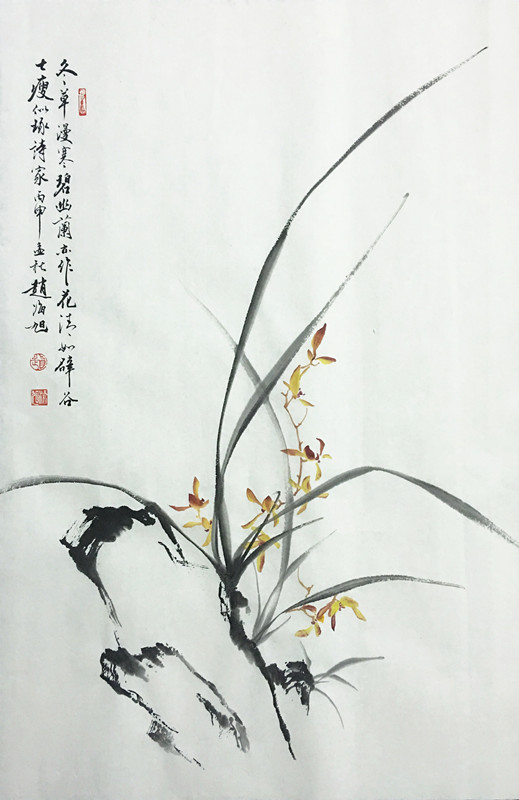 冬草漫寒碧幽蘭亦作花清如辟谷
士瘦似琢詩家丙申孟秋趙海旭